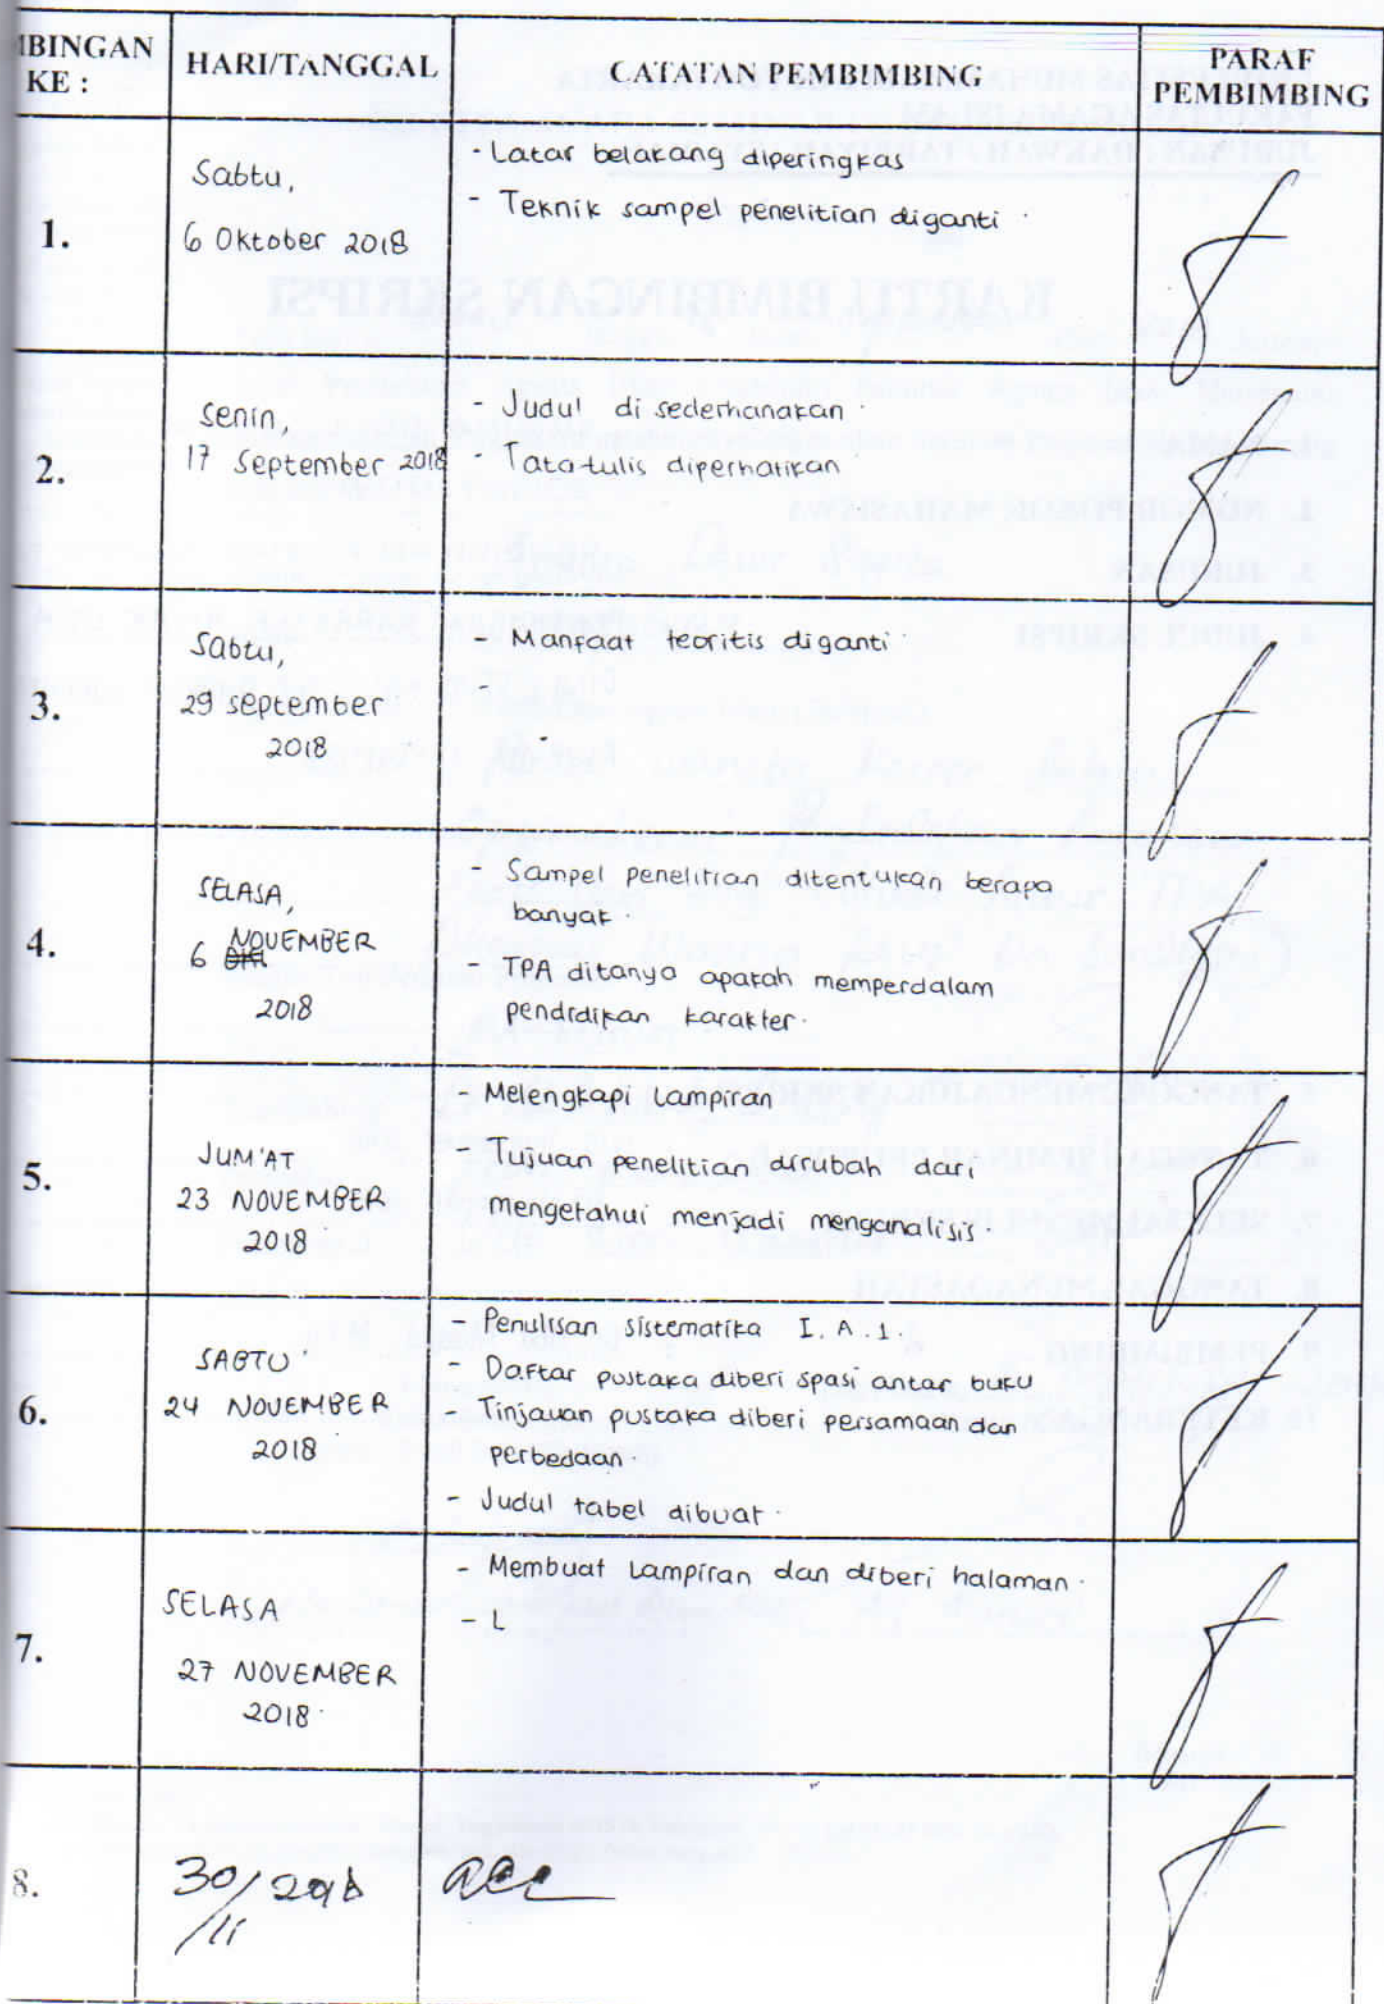 MBINGAN
KE :
HARI/TANGGAL
CATATAN PEMBIMBING
PARAF
PEMBIMBING
1.
Sabtu,
6 Oktober 2018
- Latar belakang diperingkas
- Teknik sampel penelitian diganti.
2.
Senin,
17 September 2018
- Judul di sederhanakan.
- Tata-tulis diperhatikan
3.
Sabtu,
29 September
2018
- Manfaat teoritis diganti.
-
4.
SELASA,
6 NOVEMBER
2018
- Sampel penelitian ditentukan berapa
banyak.
- TPA ditanya apakah memperdalam
pendidikan karakter.
5.
JUM'AT
23 NOVEMBER
2018
- Melengkapi Lampiran
- Tujuan penelitian dirubah dari
mengetahui menjadi menganalisis
6.
SABTU
24 NOVEMBER
2018
- Penulisan sistematika I. A. 1.
- Daftar pustaka diberi spasi antar buku
- Tinjauan pustaka diberi persamaan dan
perbedaan
- Judul tabel dibuat.
7.
SELASA
27 NOVEMBER
2018.
- Membuat Lampiran dan diberi halaman.
- L
8.
30/11 2018
acc